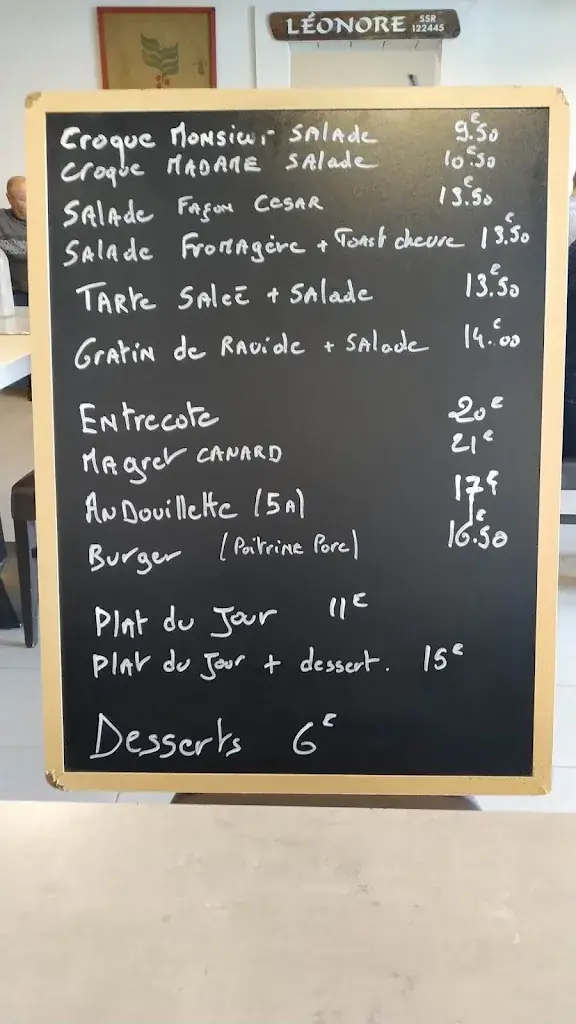 LÉONORE SSR 122445
Croque Monsieur SALADE 9€.50
Croque MADAME SAlade 10€.50
SALADE FAÇON CESAR 13€.50
SALADE FroMAgère + Toast chevre 13€.50
TARte SALéE + SAlade 13€.50
GrATiN de RAviole + SAlade 14€.00
ENtrecote 20€
MAgret CANARD 21€
ANDouillette (5A) 17€
Burger (Poitrine Porc) 16€.50
PlAt du Jour 11€
PlAt du Jour + dessert. 15€
Desserts 6€